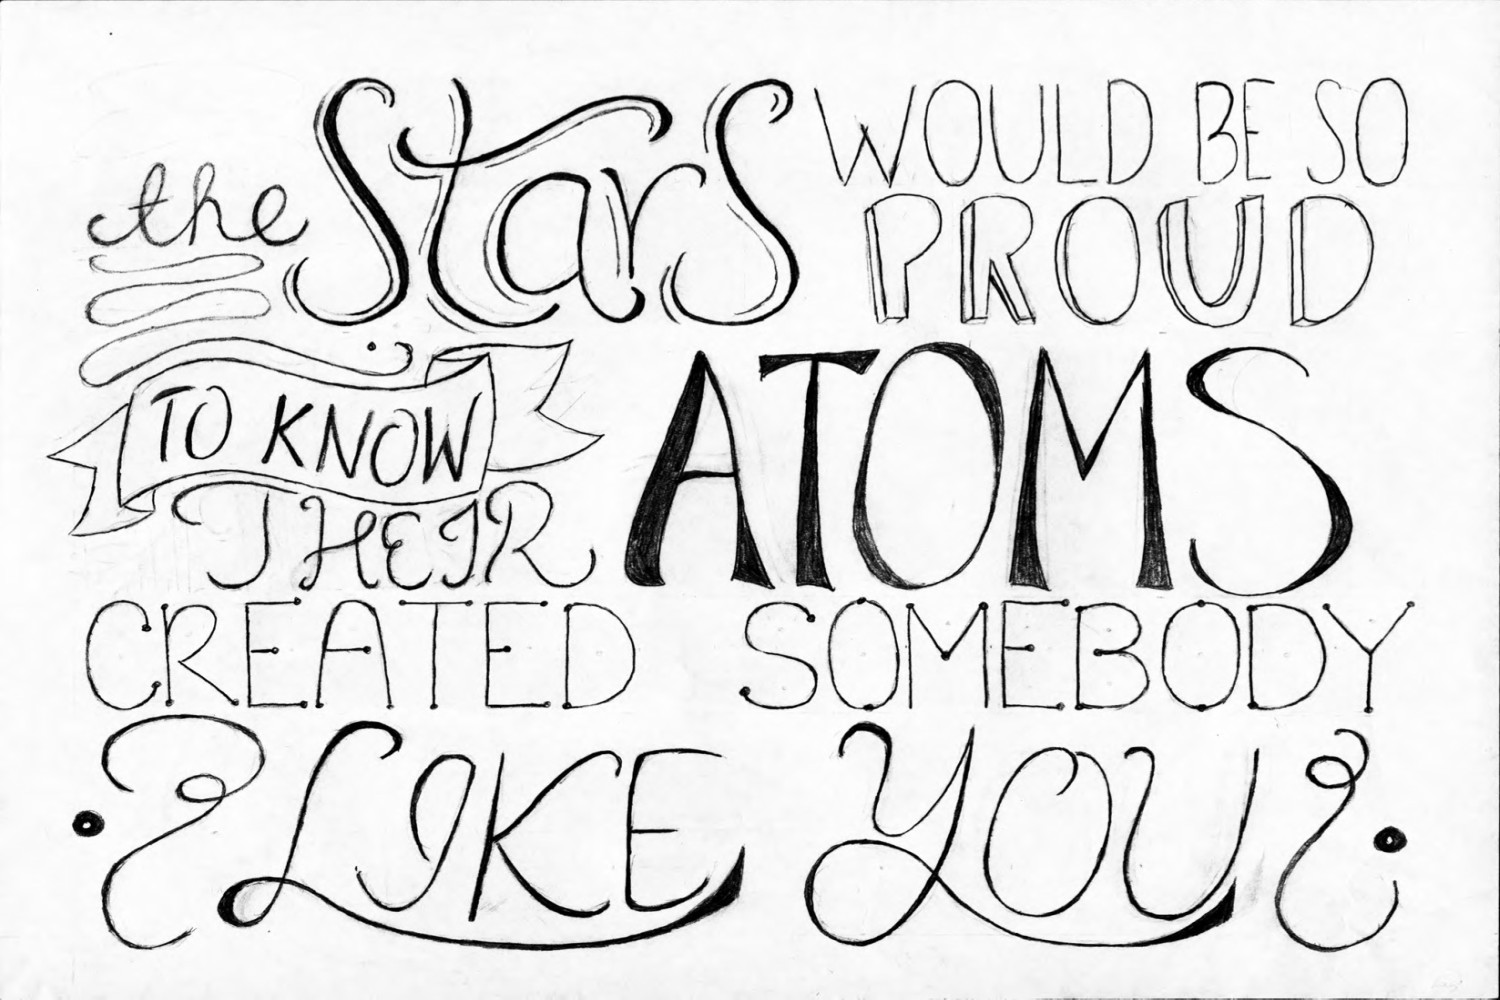 the Stars WOULD BE SO
PROUD
TO KNOW
THEIR ATOMS
CREATED SOMEBODY
LIKE YOU